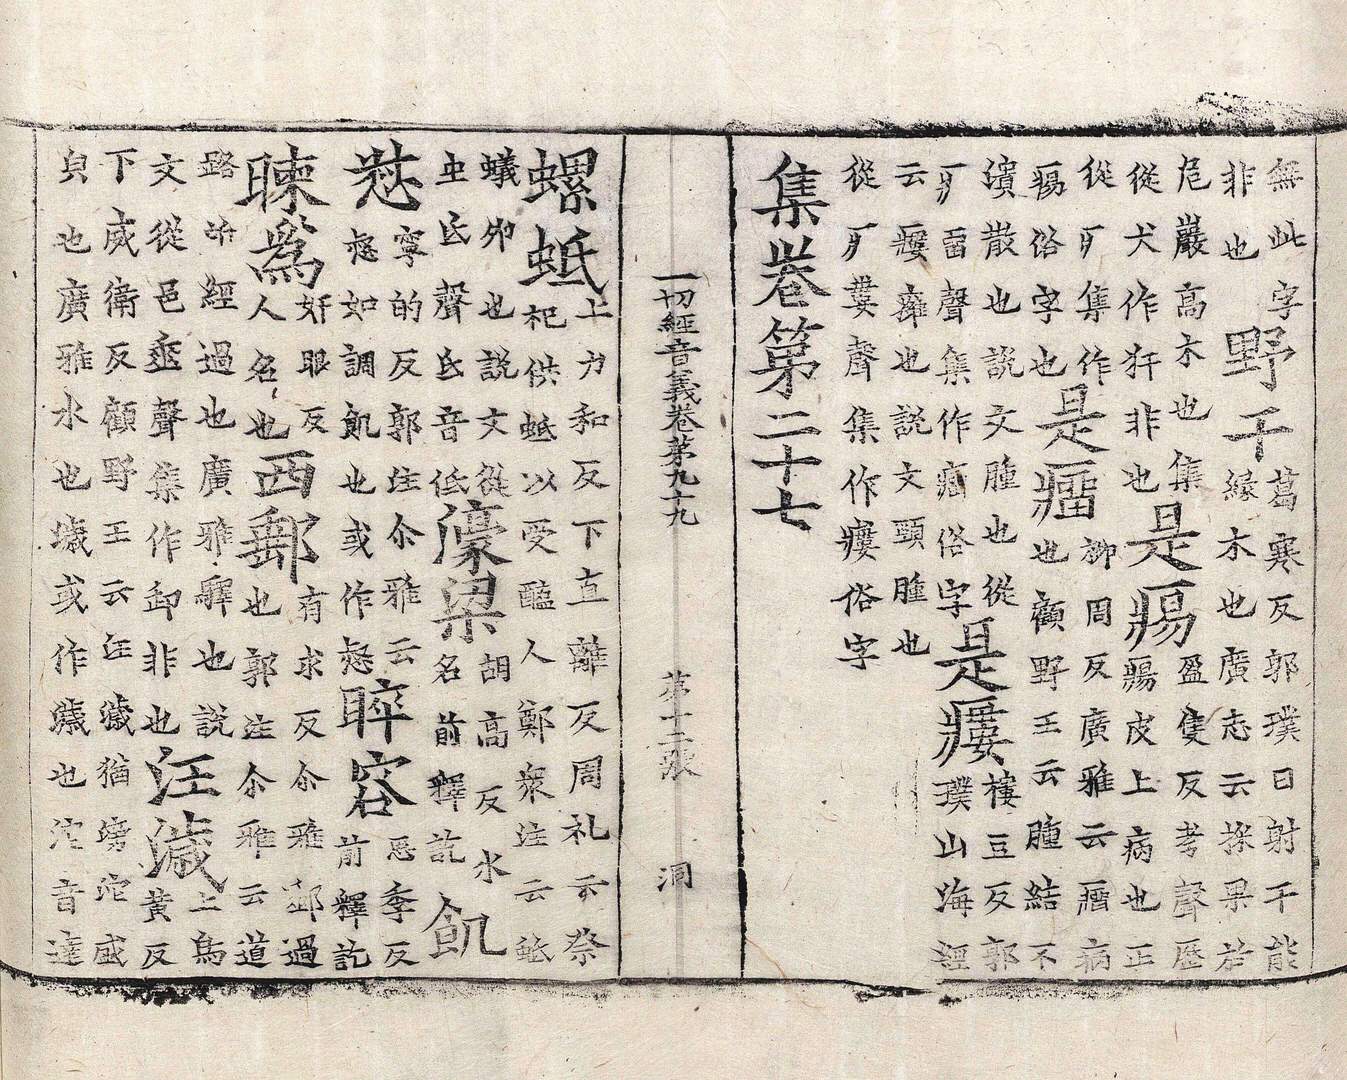 無此字非也野干葛寒反郭璞曰射干能緣木也廣志云探果於
危巖高木也集從犬作犴非也是瘍盈隻反考聲歷瘍皮上病也正
從疒集作瘍俗字也是瘤柳周反廣雅云瘤病也顧野王云腫結不
潰散也說文腫也從疒畱聲集作瘤俗字是瘻樓豆反郭璞山海經
云瘻癰也說文頸腫也從疒婁聲集作瘻俗字
集卷第二十七
一切經音義卷第九十九 第十二張 洞
螺蚳上力和反下直離反周礼云祭祀供蚳以受醢人鄭衆注云蚳
蟻卵也說文從虫氐聲氐音低濠梁胡高反水名前釋訖飢
惄寧的反郭注尒雅云惄如調飢也或作惄睟容恶季反前釋訖
暕爲奸眼反人名也西郵有求反尒雅郵過也郭注尒雅云道
路㳂經過也廣雅驛也說文從邑垂聲集作卸非也汪濊上烏黃反
下威衛反顧野王云汪濊猶滂沱盛皃也廣雅水也濊或作濊也沱音達